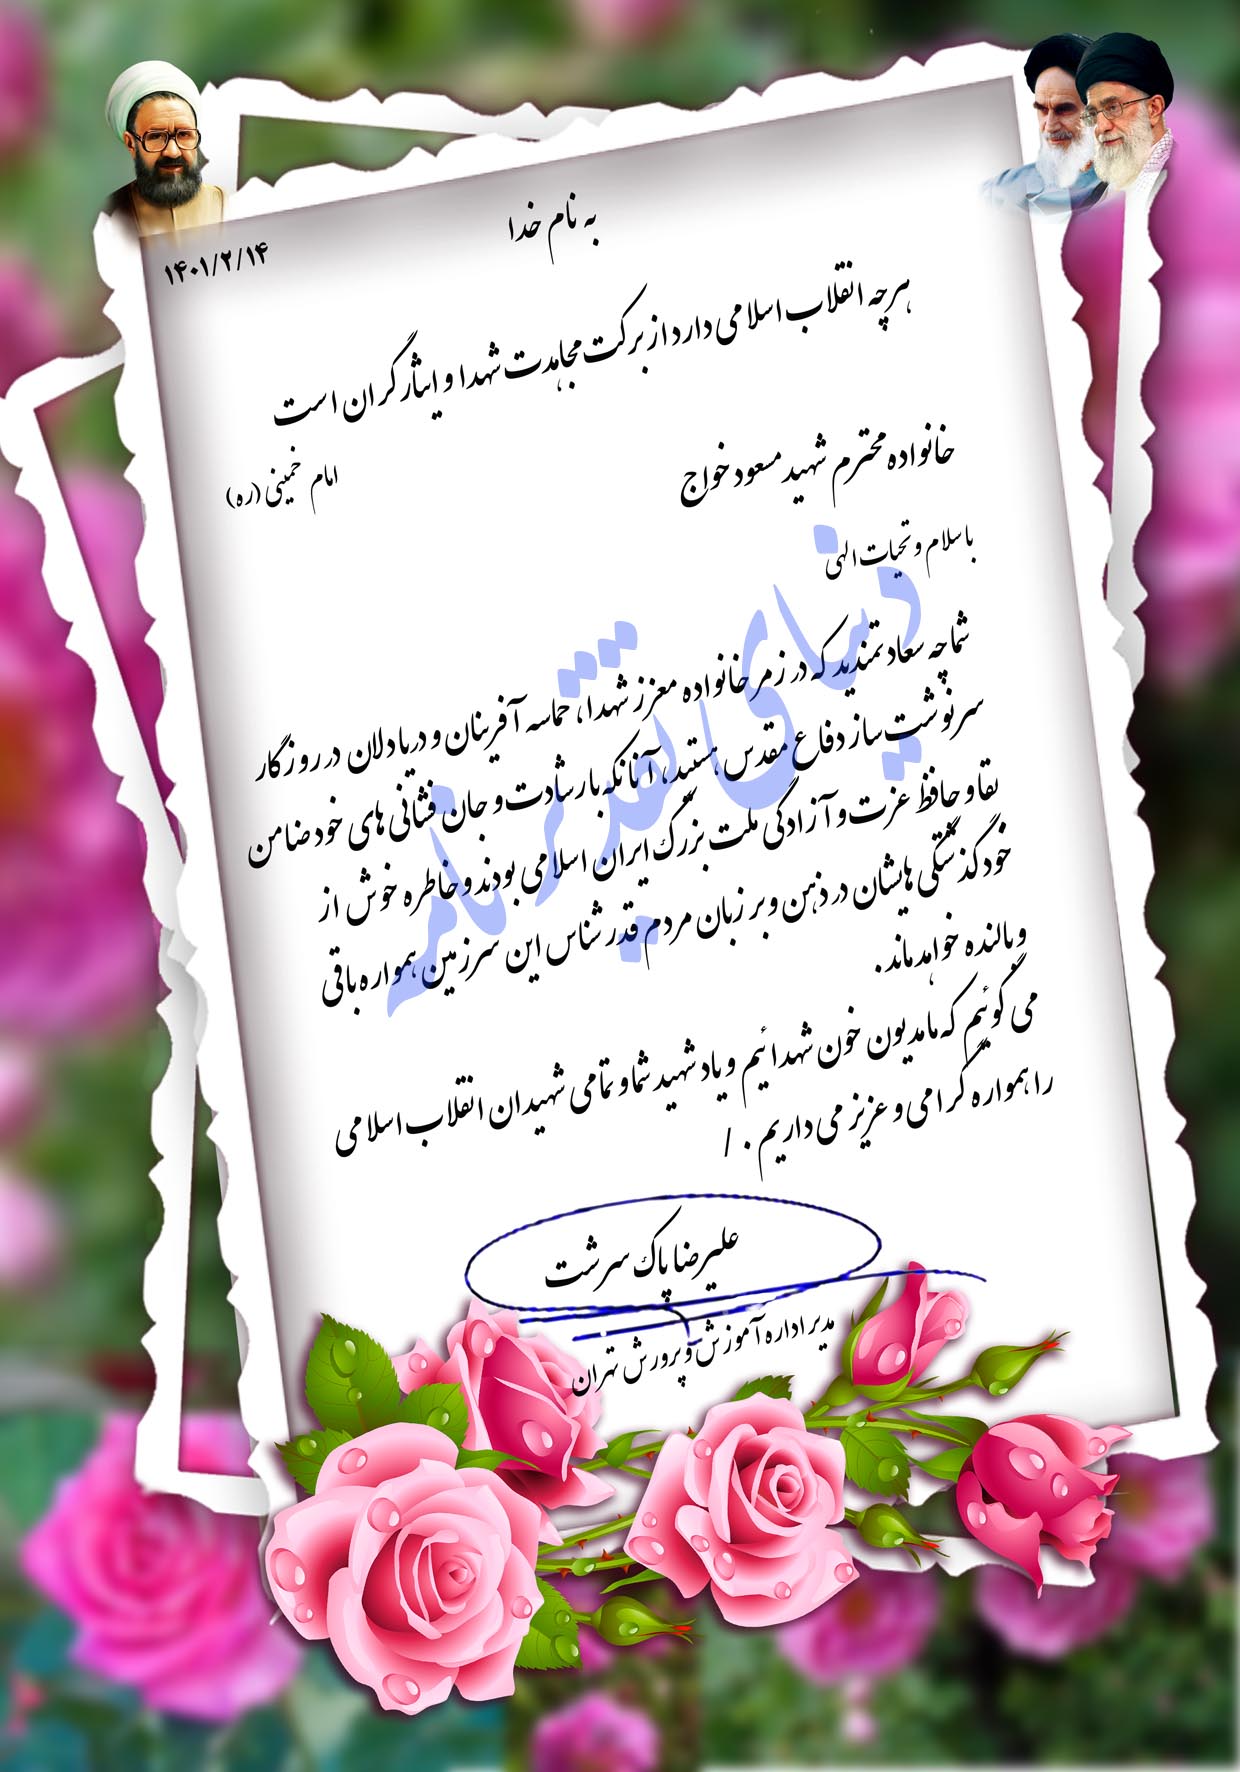 به نام خدا
۱۴۰۱/۲/۱۴
هرچه انقلاب اسلامی دارد از برکت مجاهدت شهدا و ایثارگران است
امام خمینی (ره)
خانواده محترم شهید مسعود خواج
باسلام و تحیات الهی
شما چه سعادتمندید که در زمر خانواده معزز شهدا، حماسه آفرینان و دریادلان در روزگار
سرنوشت ساز دفاع مقدس هستید، آنانکه با رشادت و جان فشانی های خود ضامن
بقا و حافظ عزت و آزادگی ملت بزرگ ایران اسلامی بودند و خاطره خوش از
خودگذشتگی هایشان در ذهن و بر زبان مردم قدرشناس این سرزمین همواره باقی
و بالنده خواهد ماند.
می گوئیم که ما مدیون خون شهدائیم و یاد شهید شما و تمامی شهیدان انقلاب اسلامی
را همواره گرامی و عزیز می داریم ۰ /
علیرضا پاک سرشت
مدیر اداره آموزش و پرورش تهران
دنیای تقدیرنامه